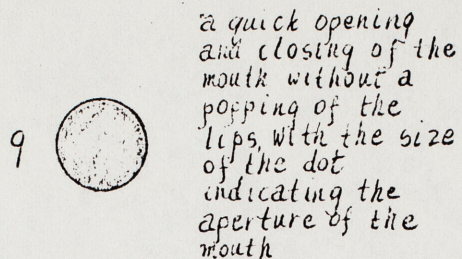 a quick opening
and closing of the
mouth without a
popping of the
lips, with the size
9 of the dot
indicating the
aperture of the
mouth